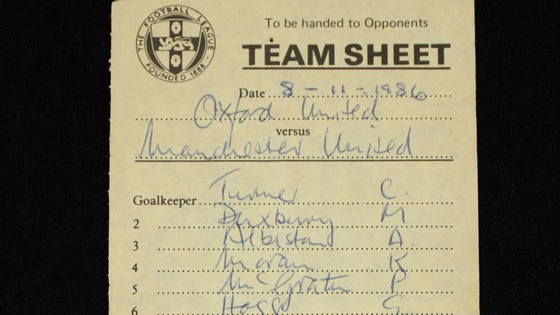 THE FOOTBALL LEAGUE
FOUNDED 1888
To be handed to Opponents
TEAM SHEET
Date 8-11-1986
Oxford United
versus
Manchester United
Goalkeeper Turner C.
2 Duxberry M
3 Albiston A
4 Moran K
5 McGrath P
6 Hogg G